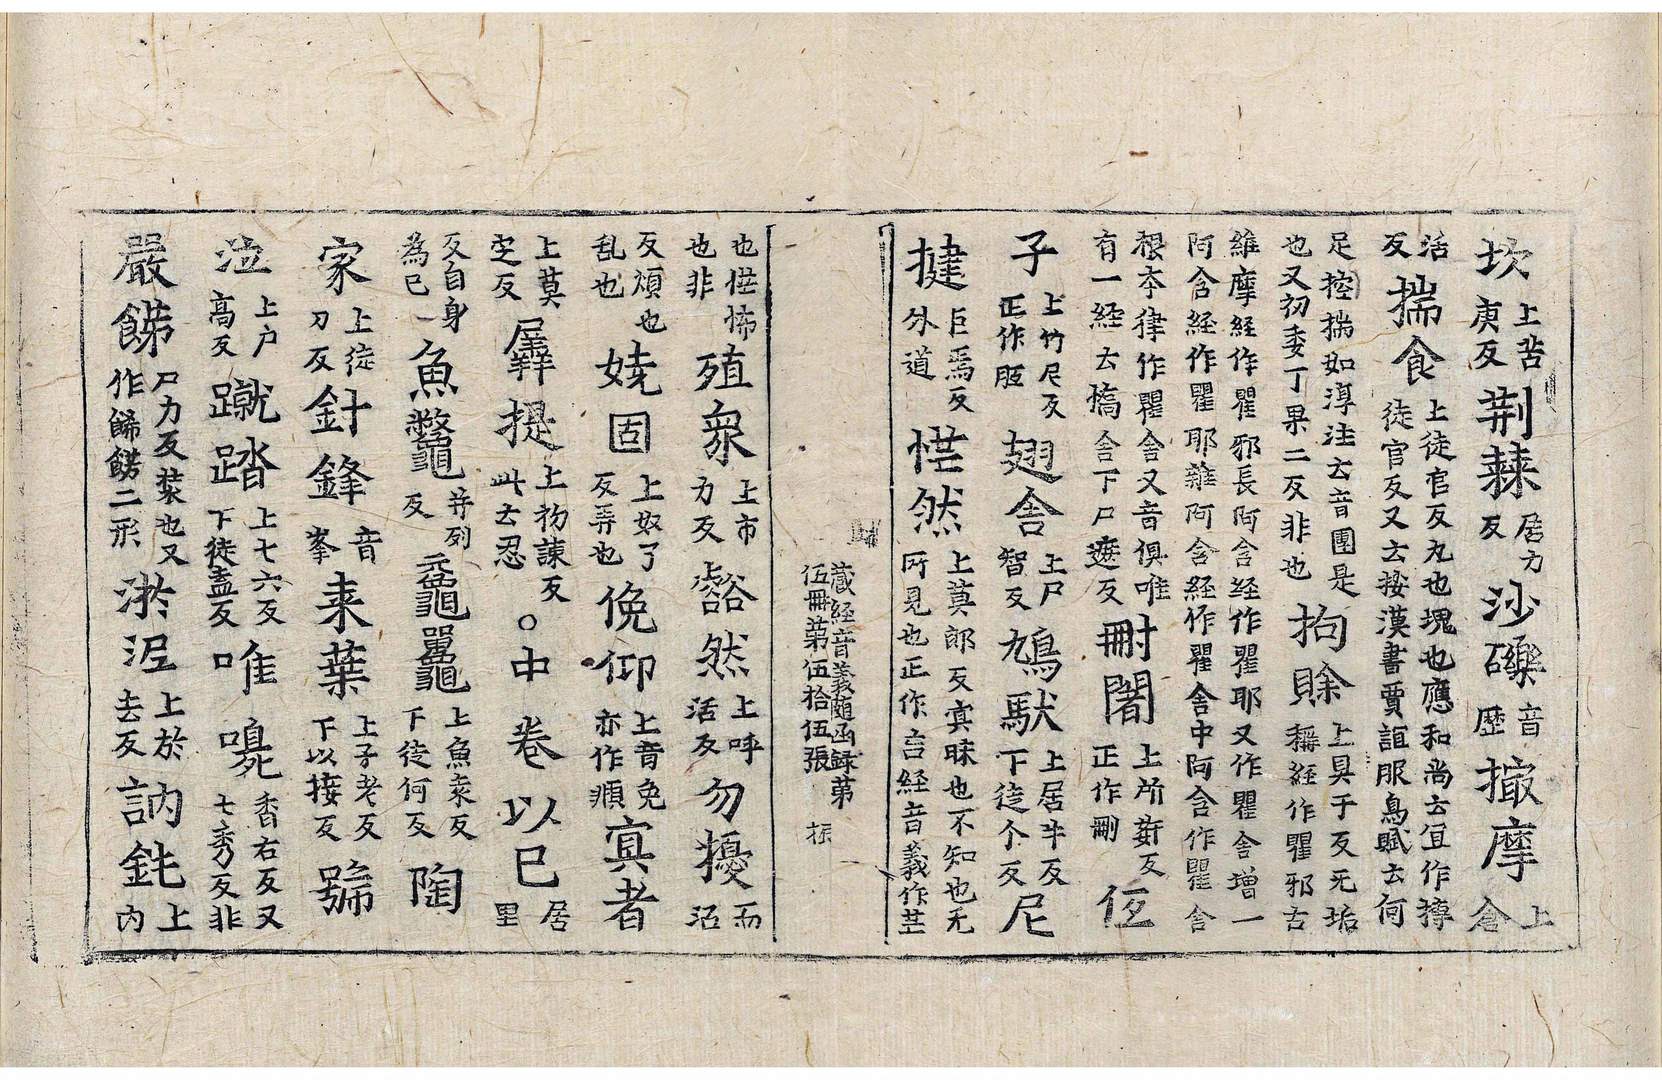 坑上苦庚反荆棘居力反沙礫音歴撮摩上倉
活反揣食上徒官反丸也塊也應和尚云宜作摶徒官反又云按漢書賈誼服鳥賦云何
足控揣如淳注云音團是也又初委丁果二反非也拘賖上具于反无垢稱経作瞿邪古
維摩経作瞿邪長阿含経作瞿耶又作瞿舎增一阿含経作瞿耶雜阿含経作瞿舎中阿含作瞿舎
根夲律作瞿舎又音俱唯有一経云撟舎下尸遮反刪闍上所薪反正作刪
子上竹尼反正作胝翅舎上尸智反鳩馱上居牛反下徒个反尼
揵巨焉反外道恾然上莫郎反㝠昧也不知也无所見也正作経音義作茫
藏経音義随函録第
伍冊第伍拾伍張 振
也恾怖也非殖衆上市力反豁然上呼活反勿擾而沼
反煩也乱也嬈固上奴了反弄也俛仰上音免亦作頫㝠者
上莫㝎反羼提上初諫反此云忍○中卷以已居里
反自身為已魚鼈并列反黿鼉上魚袁反下徒何反陶
家上徒刀反針鋒音峯棗葉上子老反下以接反號
泣上戸高反蹴踏上七六反下徒盍反唯嗅香右反又七秀反非
嚴餙尸力反裝也又作餝二形淤泥上於去反訥鈍上内